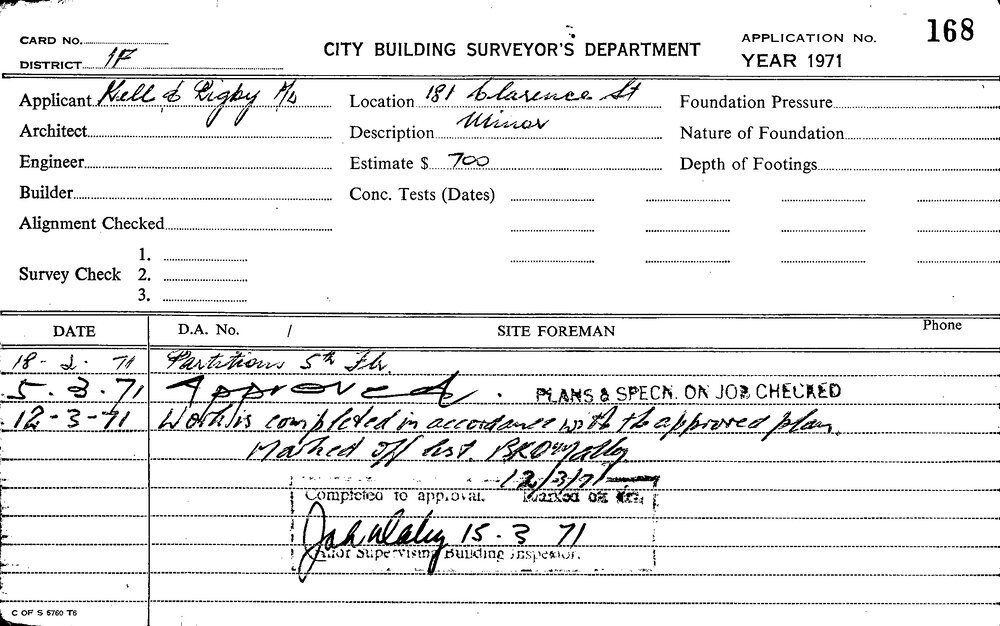 CARD No.
DISTRICT 1F
CITY BUILDING SURVEYOR'S DEPARTMENT
APPLICATION No. 168
YEAR 1971
Applicant Kell & Rigby P/L
Location 181 Clarence St
Foundation Pressure
Architect
Description Minor
Nature of Foundation
Engineer
Estimate $ 700
Depth of Footings
Builder
Conc. Tests (Dates)
Alignment Checked
Survey Check 1.
2.
3.
DATE D.A. No. / SITE FOREMAN Phone
18-2-71 Partitions 5th Flr.
5.3.71 Approved. PLANS & SPECN. ON JOB CHECKED
12-3-71 Work is completed in accordance with the approved plan.
Marked off list.
12/3/71
Completed to approval. Marked off
15-3 71
for Supervising Building Inspector.
C OF S 5760 T6